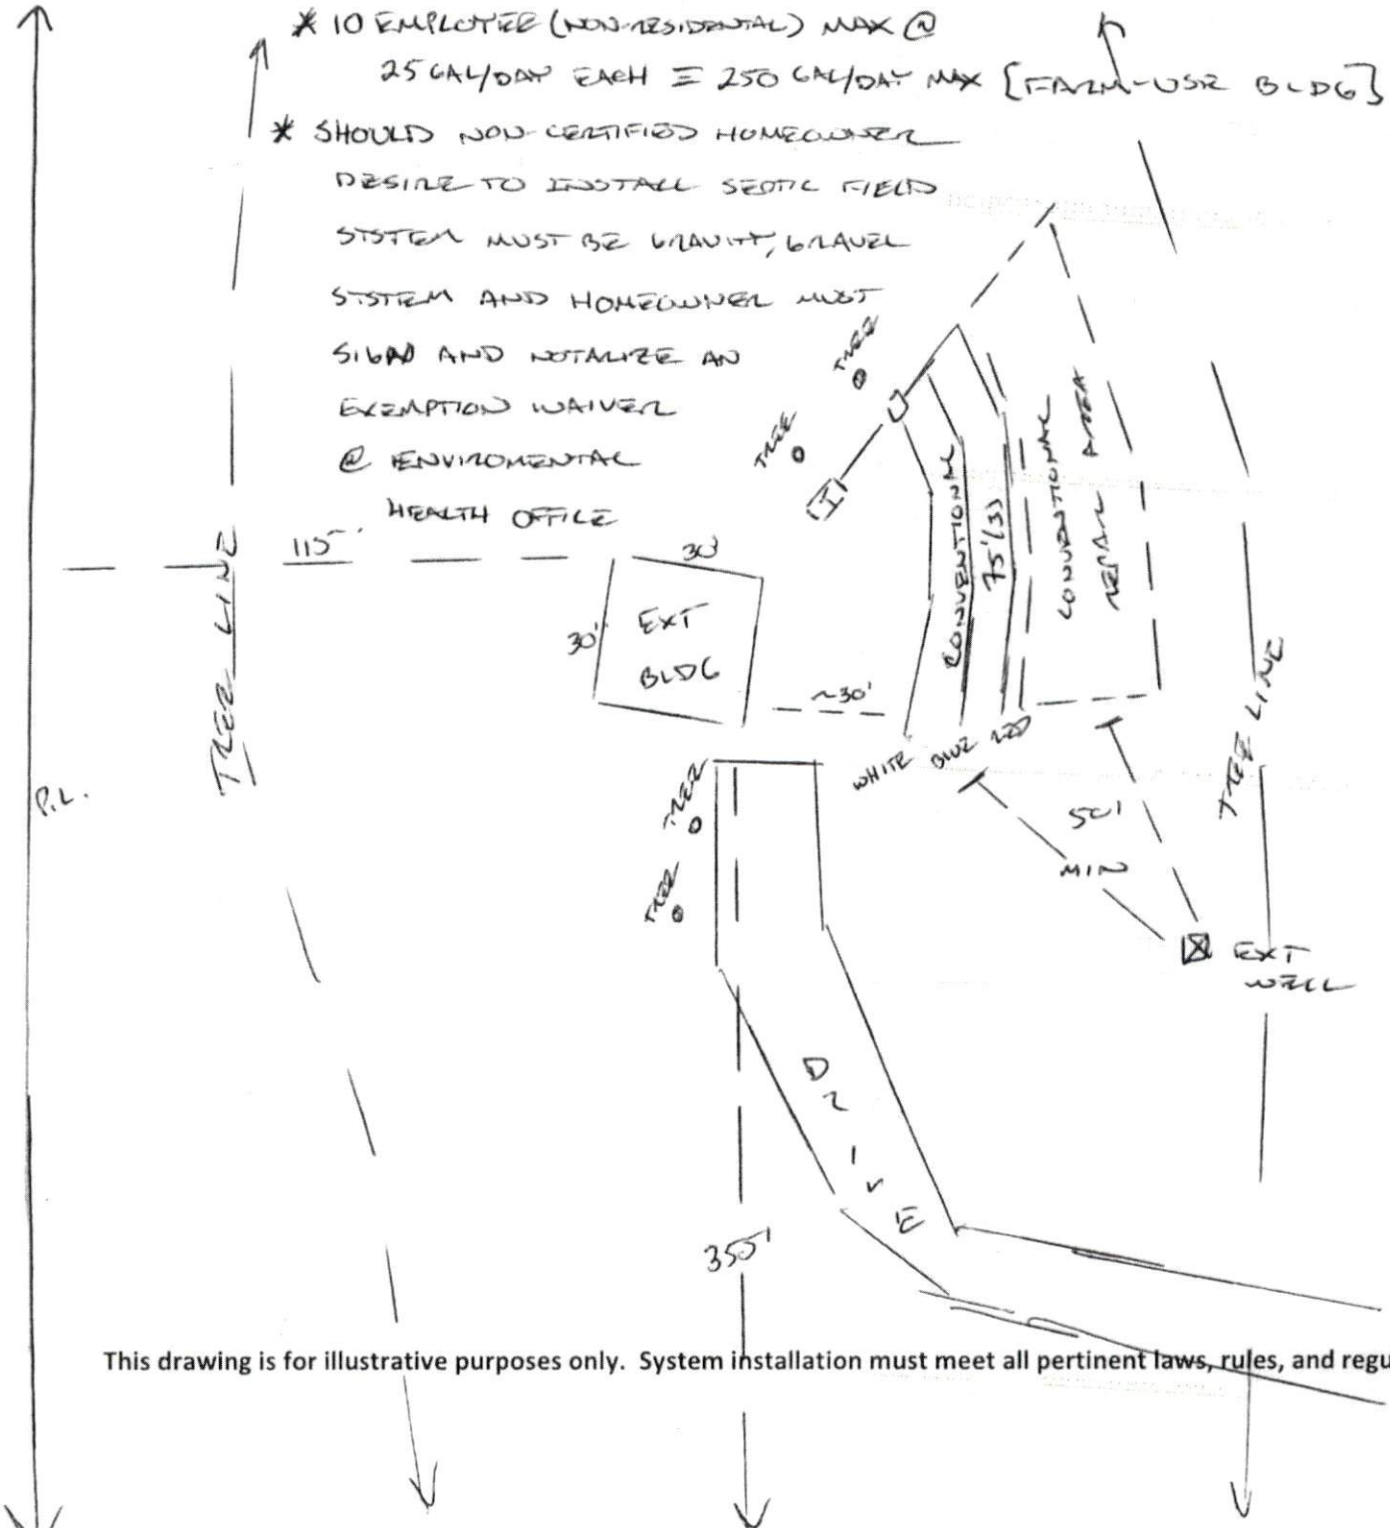 * 10 EMPLOYEE (NON-RESIDENTAL) MAX @
25 GAL/DAY EACH = 250 GAL/DAY MAX [FARM-USE BLDG]
* SHOULD NON-CERTIFIED HOMEOWNER
DESIRE TO INSTALL SEPTIC FIELD
SYSTEM MUST BE GRAVITY, GRAVEL
SYSTEM AND HOMEOWNER MUST
SIGN AND NOTARIZE AN
EXEMPTION WAIVER
@ ENVIROMENTAL
HEALTH OFFICE
TREE
TREE
115'
30'
30'
EXT
BLDG
TREE LINE
P.L.
CONVENTIONAL
75'(3)
CONVENTIONAL
REPAIR AREA
~30'
WHITE BLUE RED
TREE LINE
TREE
TREE
50'
MIN
EXT
WELL
DRIVE
355'
This drawing is for illustrative purposes only. System installation must meet all pertinent laws, rules, and regu